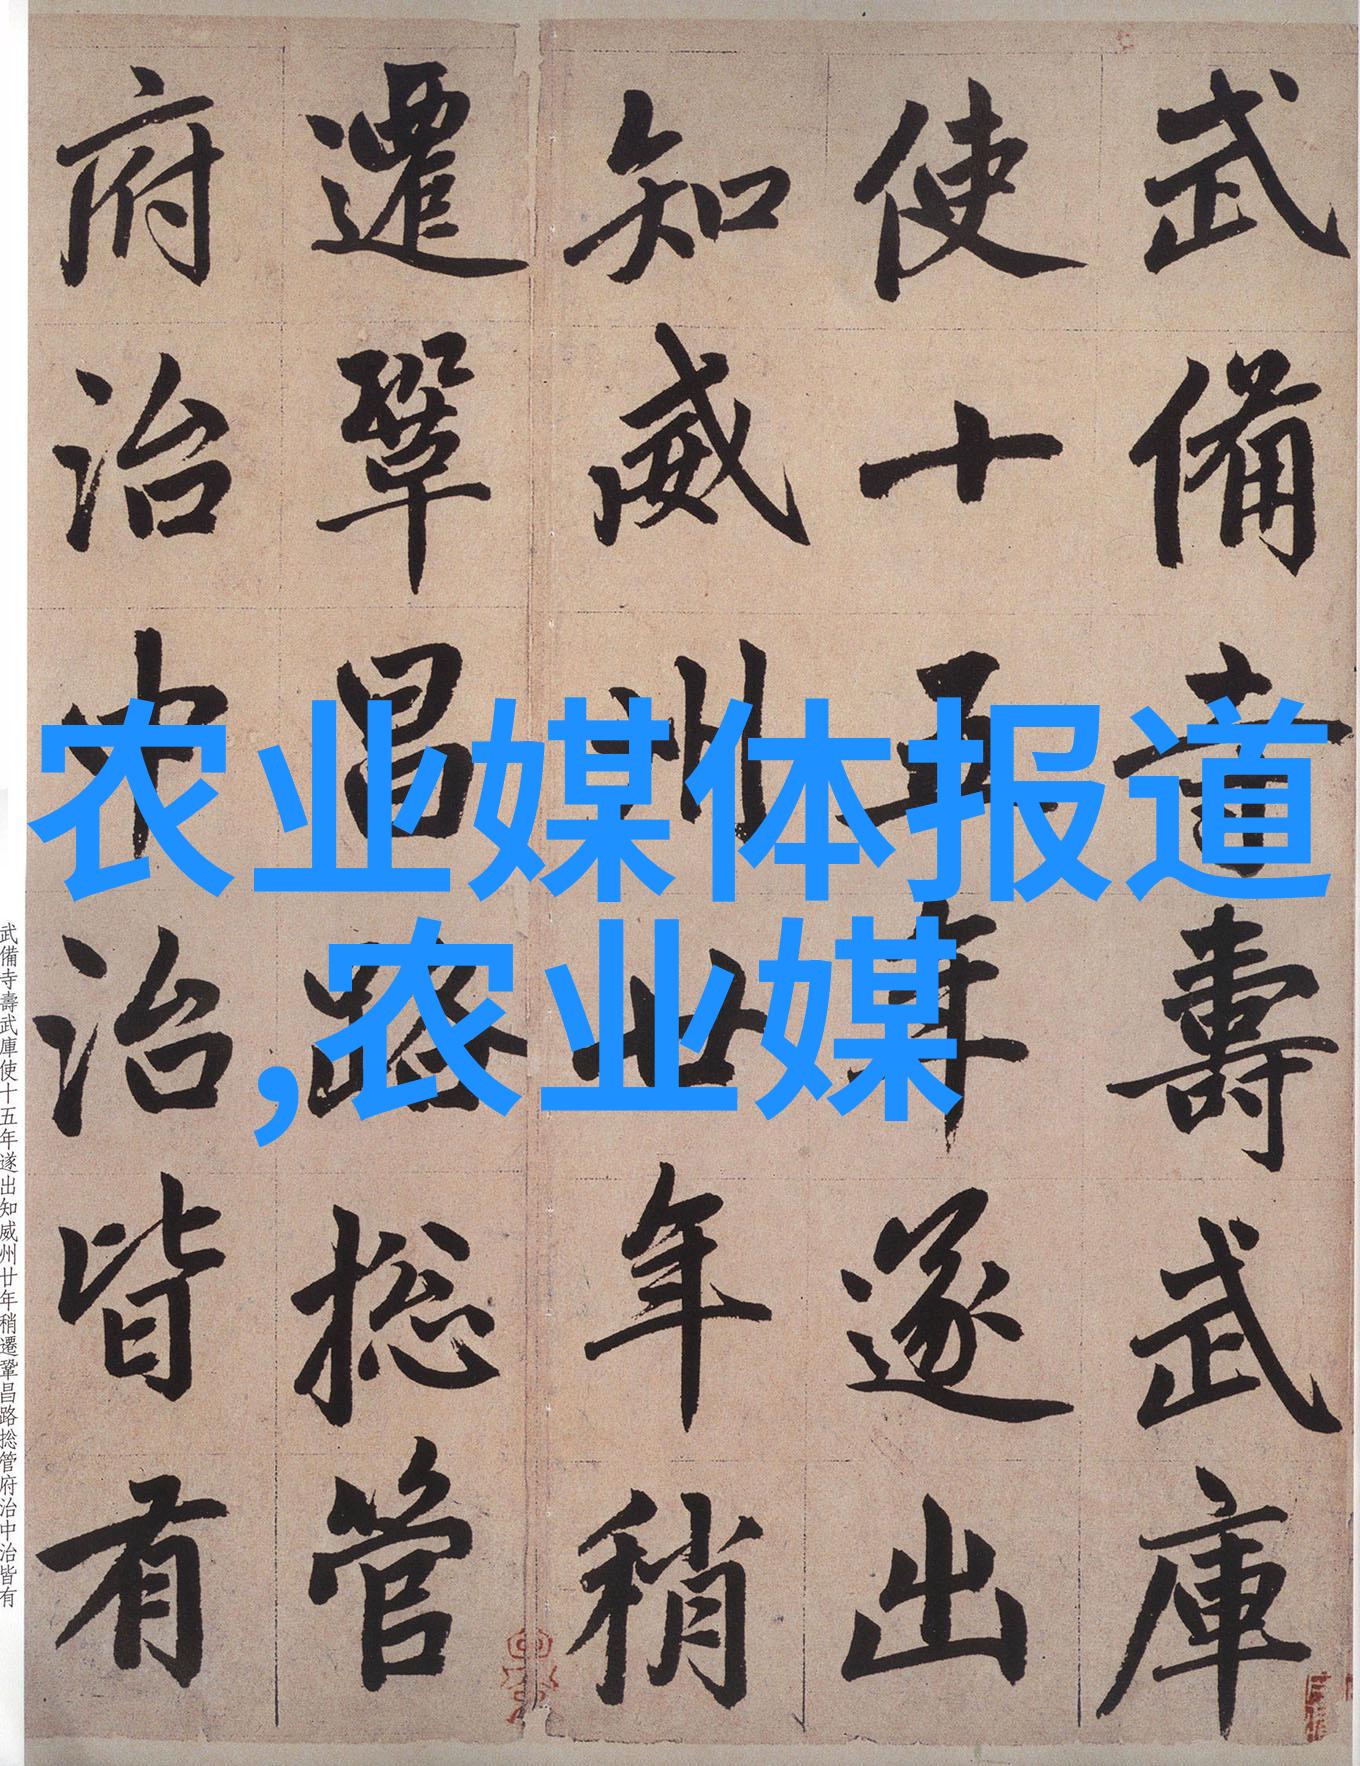 武備寺壽武庫
使十五年遂出
知威州廿年稍
遷鞏昌路捴管
府治中治皆有
农业媒体报道
,农业媒
武備寺壽武庫使十五年遂出知威州廿年稍遷鞏昌路捴管府治中治皆有